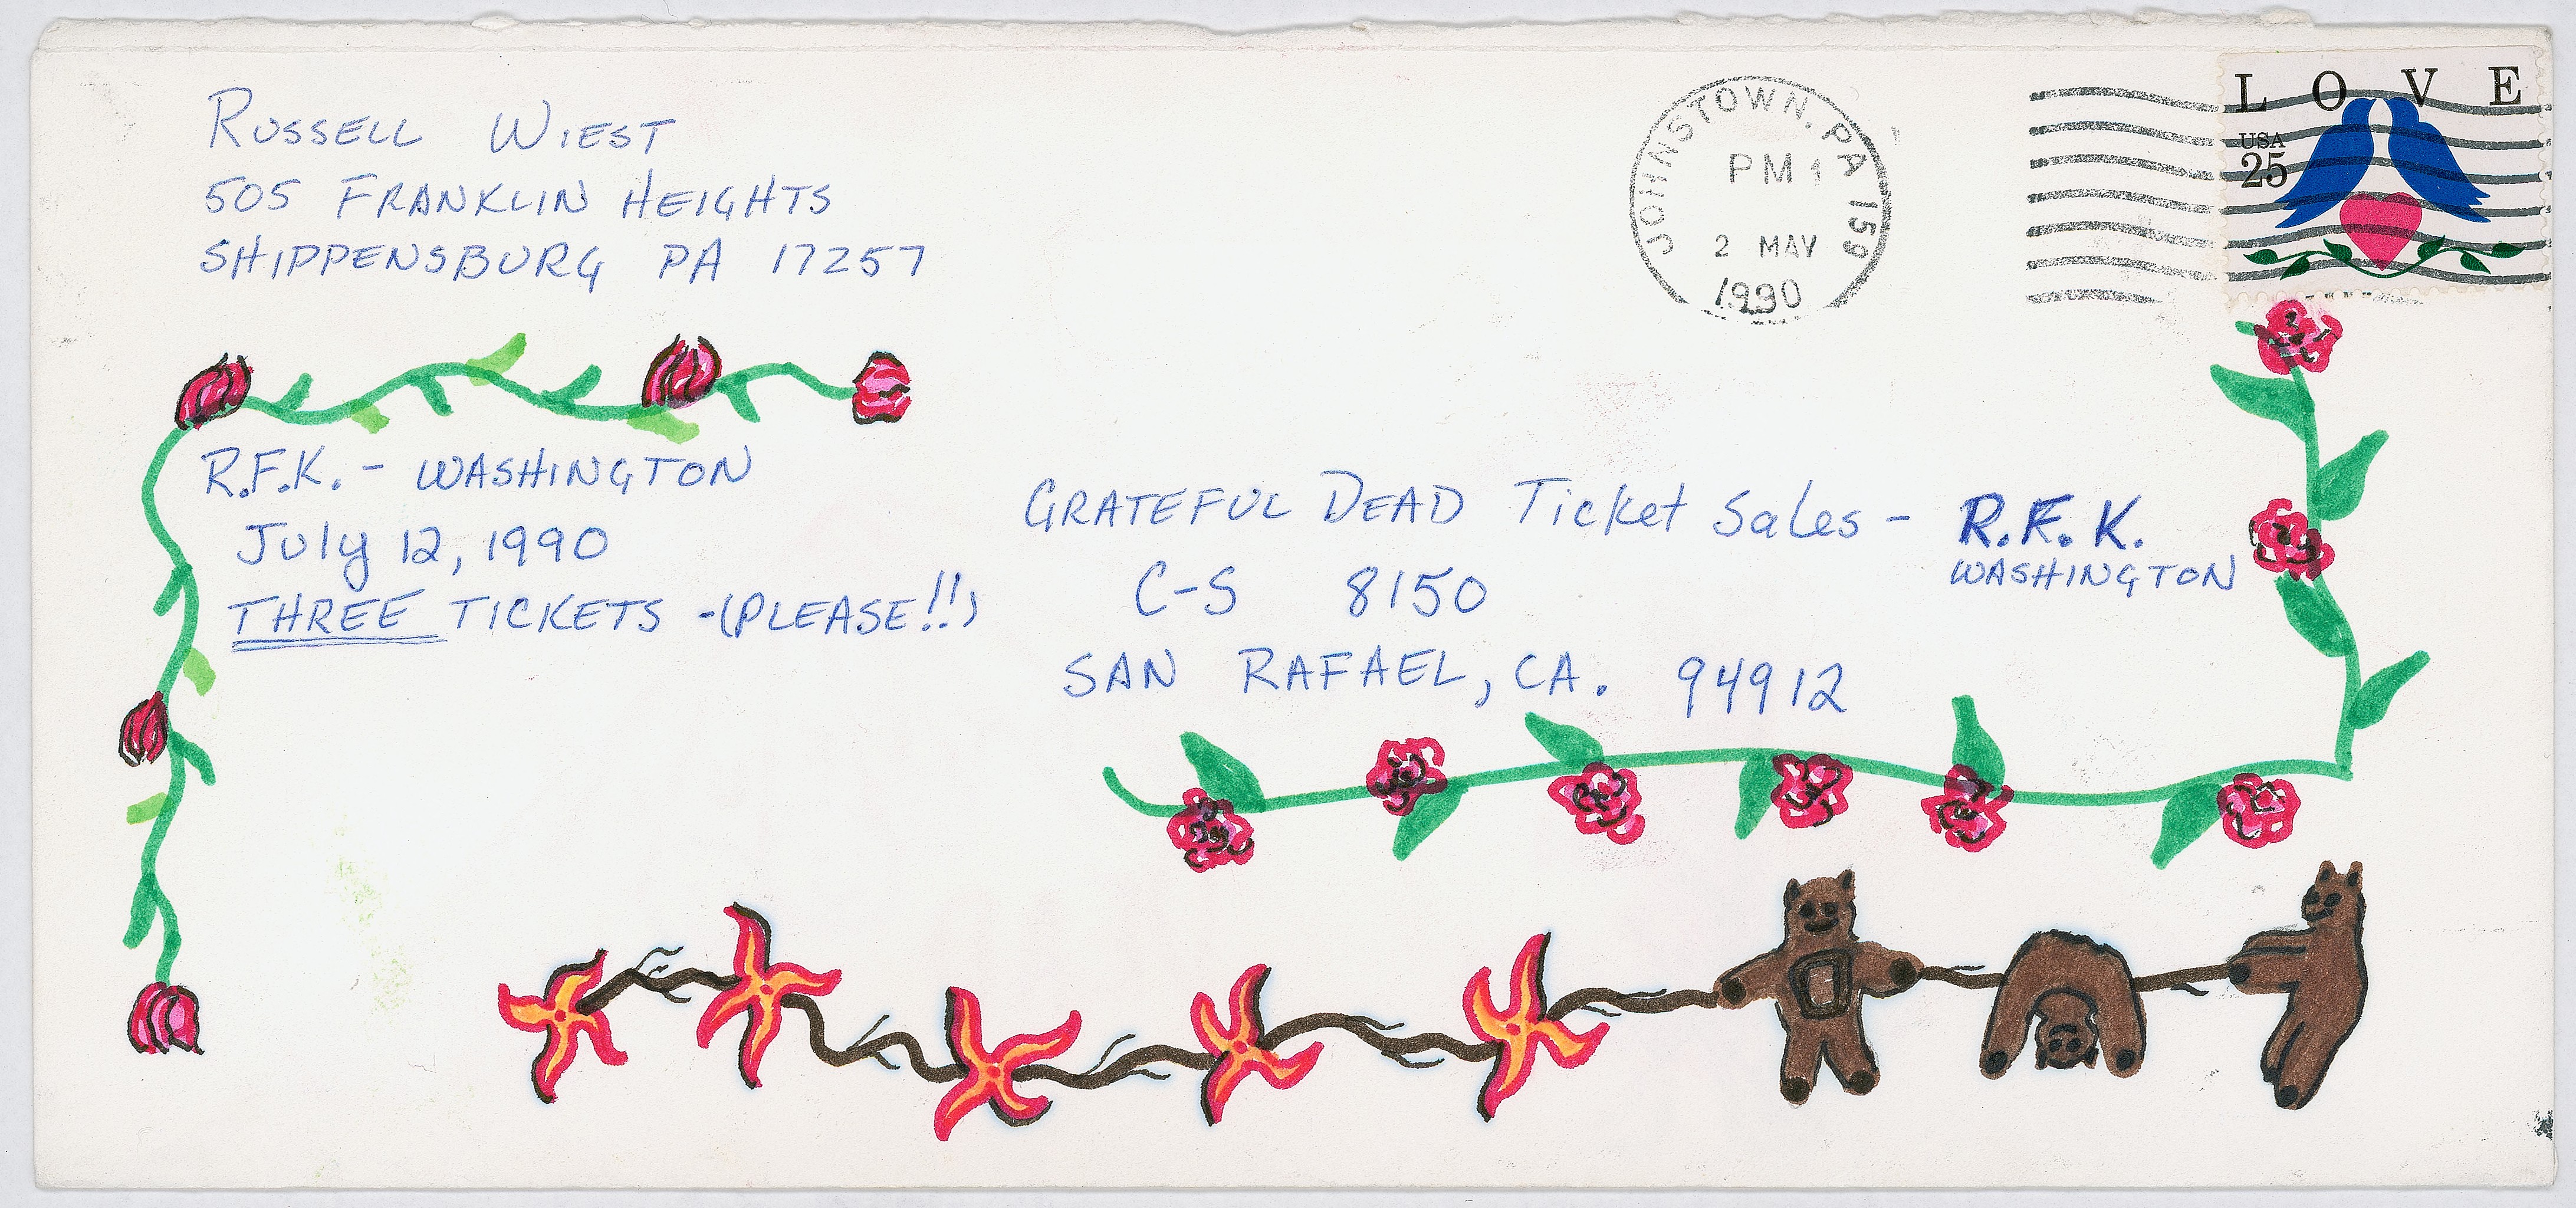 RUSSELL WIEST
505 FRANKLIN HEIGHTS
SHIPPENSBURG PA 17257
JOHNSTOWN, PA 159
PM 1
2 MAY
1990
L O V E
USA
25
R.F.K. - WASHINGTON
July 12, 1990
THREE TICKETS -(PLEASE!!)
GRATEFUL DEAD Ticket Sales - R.F.K.
WASHINGTON
C-S 8150
SAN RAFAEL, CA. 94912